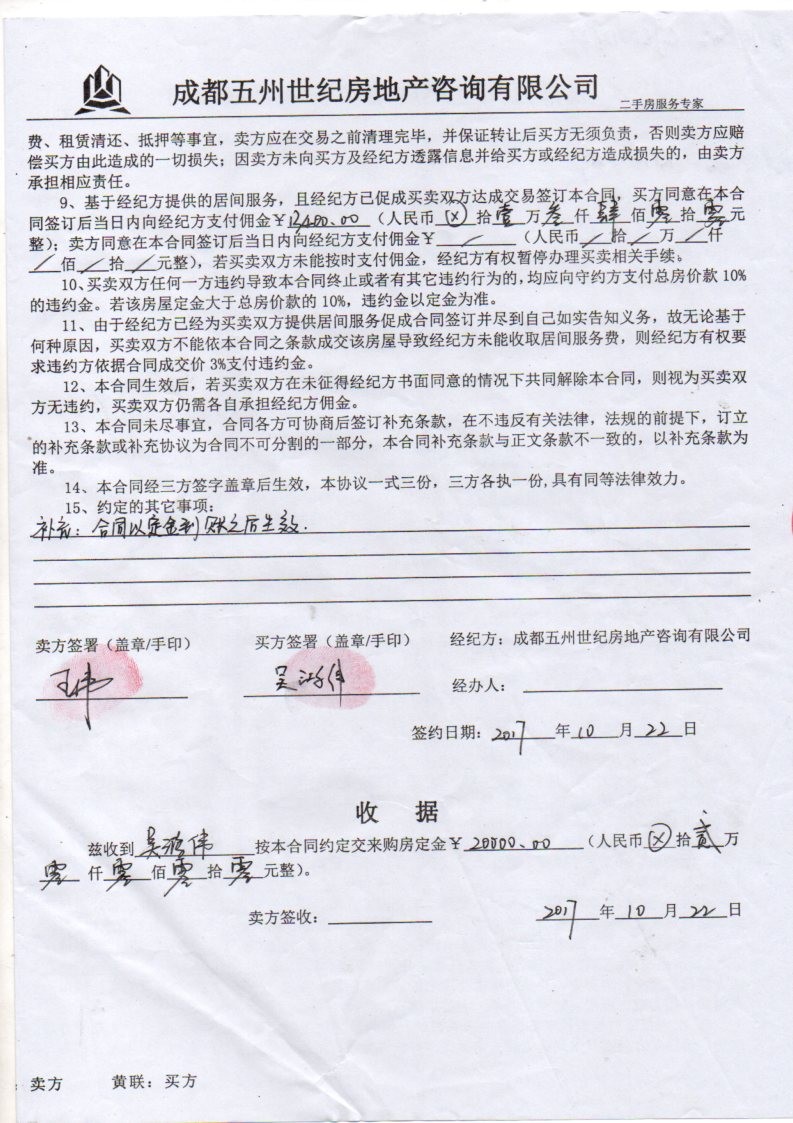 成都五州世纪房地产咨询有限公司
二手房服务专家
费、租赁清还、抵押等事宜，卖方应在交易之前清理完毕，并保证转让后买方无须负责，否则卖方应赔
偿买方由此造成的一切损失；因卖方未向买方及经纪方透露信息并给买方或经纪方造成损失的，由卖方
承担相应责任。
9、基于经纪方提供的居间服务，且经纪方已促成买卖双方达成交易签订本合同，买方同意在本合
同签订后当日内向经纪方支付佣金￥13400.00（人民币 ⊗ 拾壹万叁仟肆佰零拾零元
整）；卖方同意在本合同签订后当日内向经纪方支付佣金￥ / （人民币 / 拾 / 万 / 仟
/ 佰 / 拾 / 元整），若买卖双方未能按时支付佣金，经纪方有权暂停办理买卖相关手续。
10、买卖双方任何一方违约导致本合同终止或者有其它违约行为的，均应向守约方支付总房价款 10%
的违约金。若该房屋定金大于总房价款的 10%，违约金以定金为准。
11、由于经纪方已经为买卖双方提供居间服务促成合同签订并尽到自己如实告知义务，故无论基于
何种原因，买卖双方不能依本合同之条款成交该房屋导致经纪方未能收取居间服务费，则经纪方有权要
求违约方依据合同成交价 3%支付违约金。
12、本合同生效后，若买卖双方在未征得经纪方书面同意的情况下共同解除本合同，则视为买卖双
方无违约，买卖双方仍需各自承担经纪方佣金。
13、本合同未尽事宜，合同各方可协商后签订补充条款，在不违反有关法律，法规的前提下，订立
的补充条款或补充协议为合同不可分割的一部分，本合同补充条款与正文条款不一致的，以补充条款为
准。
14、本合同经三方签字盖章后生效，本协议一式三份，三方各执一份,具有同等法律效力。
15、约定的其它事项：
补充：合同以定金到账之后生效.
卖方签署（盖章/手印） 买方签署（盖章/手印） 经纪方：成都五州世纪房地产咨询有限公司
王伟 吴鸿伟
经办人：
签约日期：2017 年 10 月 22 日
收 据
兹收到 吴鸿伟 按本合同约定交来购房定金￥20000.00（人民币 ⊗ 拾贰万
零仟零佰零拾零元整）。
卖方签收： 2017 年 10 月 22 日
卖方 黄联：买方